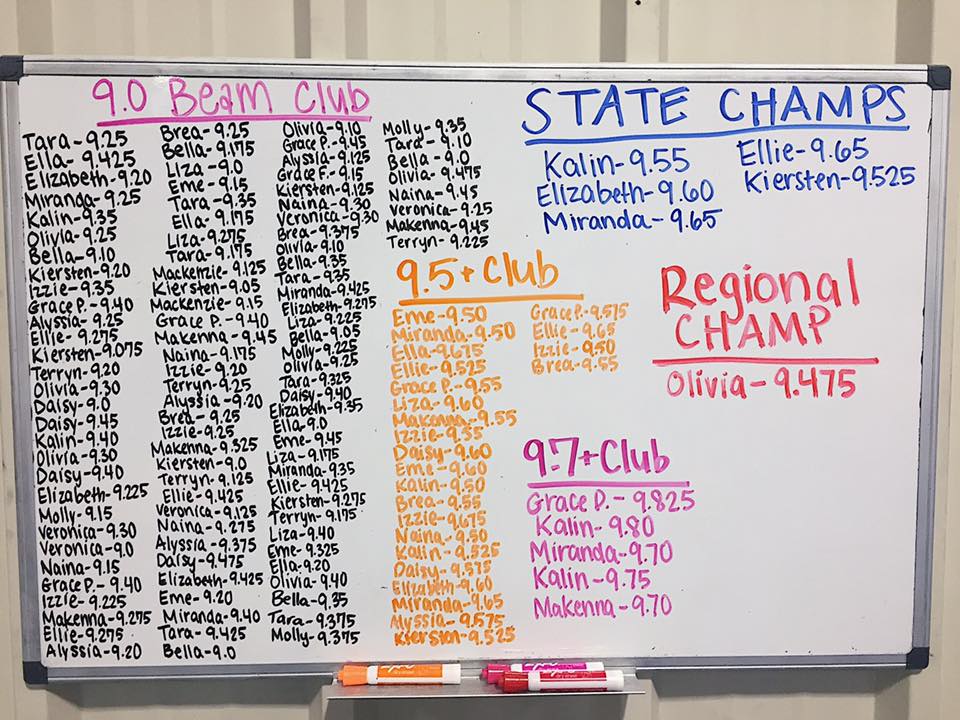 9.0 Beam Club
Tara-9.25
Ella-9.425
Elizabeth-9.20
Miranda-9.25
Kalin-9.35
Olivia-9.25
Bella-9.10
Kiersten-9.20
Izzie-9.35
Grace P.-9.40
Alyssia-9.25
Ellie-9.275
Kiersten-9.075
Terryn-9.20
Olivia-9.30
Daisy-9.0
Daisy-9.45
Kalin-9.40
Olivia-9.30
Daisy-9.40
Elizabeth-9.225
Molly-9.15
Veronica-9.30
Veronica-9.0
Naina-9.15
Grace P.-9.40
Izzie-9.225
Makenna-9.275
Ellie-9.275
Alyssia-9.20
Brea-9.25
Bella-9.175
Liza-9.0
Eme-9.15
Tara-9.35
Ella-9.175
Liza-9.275
Tara-9.175
Mackenzie-9.125
Kiersten-9.05
Mackenzie-9.15
Grace P.-9.40
Makenna-9.45
Naina-9.175
Izzie-9.20
Terryn-9.25
Alyssia-9.20
Brea-9.25
Izzie-9.25
Makenna-9.325
Kiersten-9.0
Terryn-9.125
Ellie-9.425
Veronica-9.125
Naina-9.275
Alyssia-9.375
Daisy-9.475
Elizabeth-9.425
Eme-9.20
Miranda-9.40
Tara-9.425
Bella-9.0
Olivia-9.10
Grace P.-9.45
Alyssia-9.125
Grace P.-9.15
Kiersten-9.125
Naina-9.30
Veronica-9.30
Brea-9.375
Olivia-9.10
Bella-9.35
Tara-9.35
Miranda-9.425
Elizabeth-9.275
Liza-9.225
Bella-9.05
Molly-9.225
Olivia-9.25
Tara-9.325
Daisy-9.40
Elizabeth-9.35
Ella-9.0
Eme-9.45
Liza-9.175
Miranda-9.35
Ellie-9.425
Kiersten-9.275
Terryn-9.175
Liza-9.40
Eme-9.325
Ella-9.20
Olivia-9.40
Bella-9.35
Tara-9.375
Molly-9.375
Molly-9.35
Tara-9.10
Bella-9.0
Olivia-9.475
Naina-9.45
Veronica-9.25
Makenna-9.45
Terryn-9.225
9.5+ Club
Eme-9.50
Miranda-9.50
Ella-9.675
Ellie-9.525
Grace P.-9.55
Liza-9.60
Makenna-9.55
Izzie-9.55
Daisy-9.60
Eme-9.60
Kalin-9.50
Brea-9.55
Izzie-9.675
Naina-9.50
Kalin-9.525
Daisy-9.575
Elizabeth-9.60
Miranda-9.65
Alyssia-9.575
Kiersten-9.525
Grace P.-9.575
Ellie-9.65
Izzie-9.50
Brea-9.55
STATE CHAMPS
Kalin-9.55
Elizabeth-9.60
Miranda-9.65
Ellie-9.65
Kiersten-9.525
Regional
CHAMP
Olivia-9.475
9.7+Club
Grace P.-9.825
Kalin-9.80
Miranda-9.70
Kalin-9.75
Makenna-9.70
expo